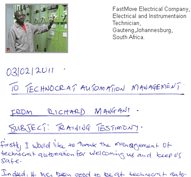 FastMore Electrical Company,
Electrical and Instrumentaion
Technician,
Gauteng, Johannesburg,
South Africa.
03/02/2011.
TO TECHNOCRAT AUTOMATION MANAGEMENT
FROM RICHARD MANGANI
SUBJECT: TRAINING TESTIMONY
Firstly I would like to thank the management of
technocrat automation for welcoming us and keep us
safe.
Indeed it has been good to be at technocrat auto-